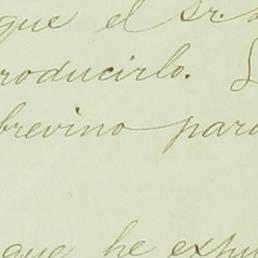 que el Sr.
roducirlo.
brevino para
que he expu